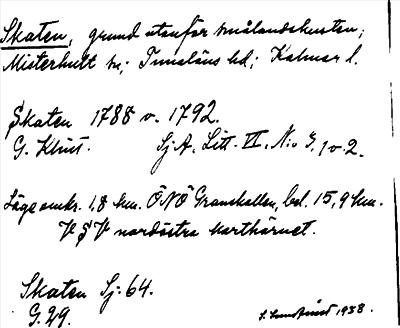 Skaten, grund utanför Smålandskusten;
Misterhult sn; Tunaläns hd; Kalmar l.
Skaten 1788 o. 1792.
G. Klint. Sj. A. Litt. VI, N:o 3, 1 o. 2.
Läge omkr. 1,8 km. ÖNÖ Granskallen, bel. 15,9 km.
V § V nordöstra karthörnet.
Skaten Sj. 64.
G. 29. 1938.